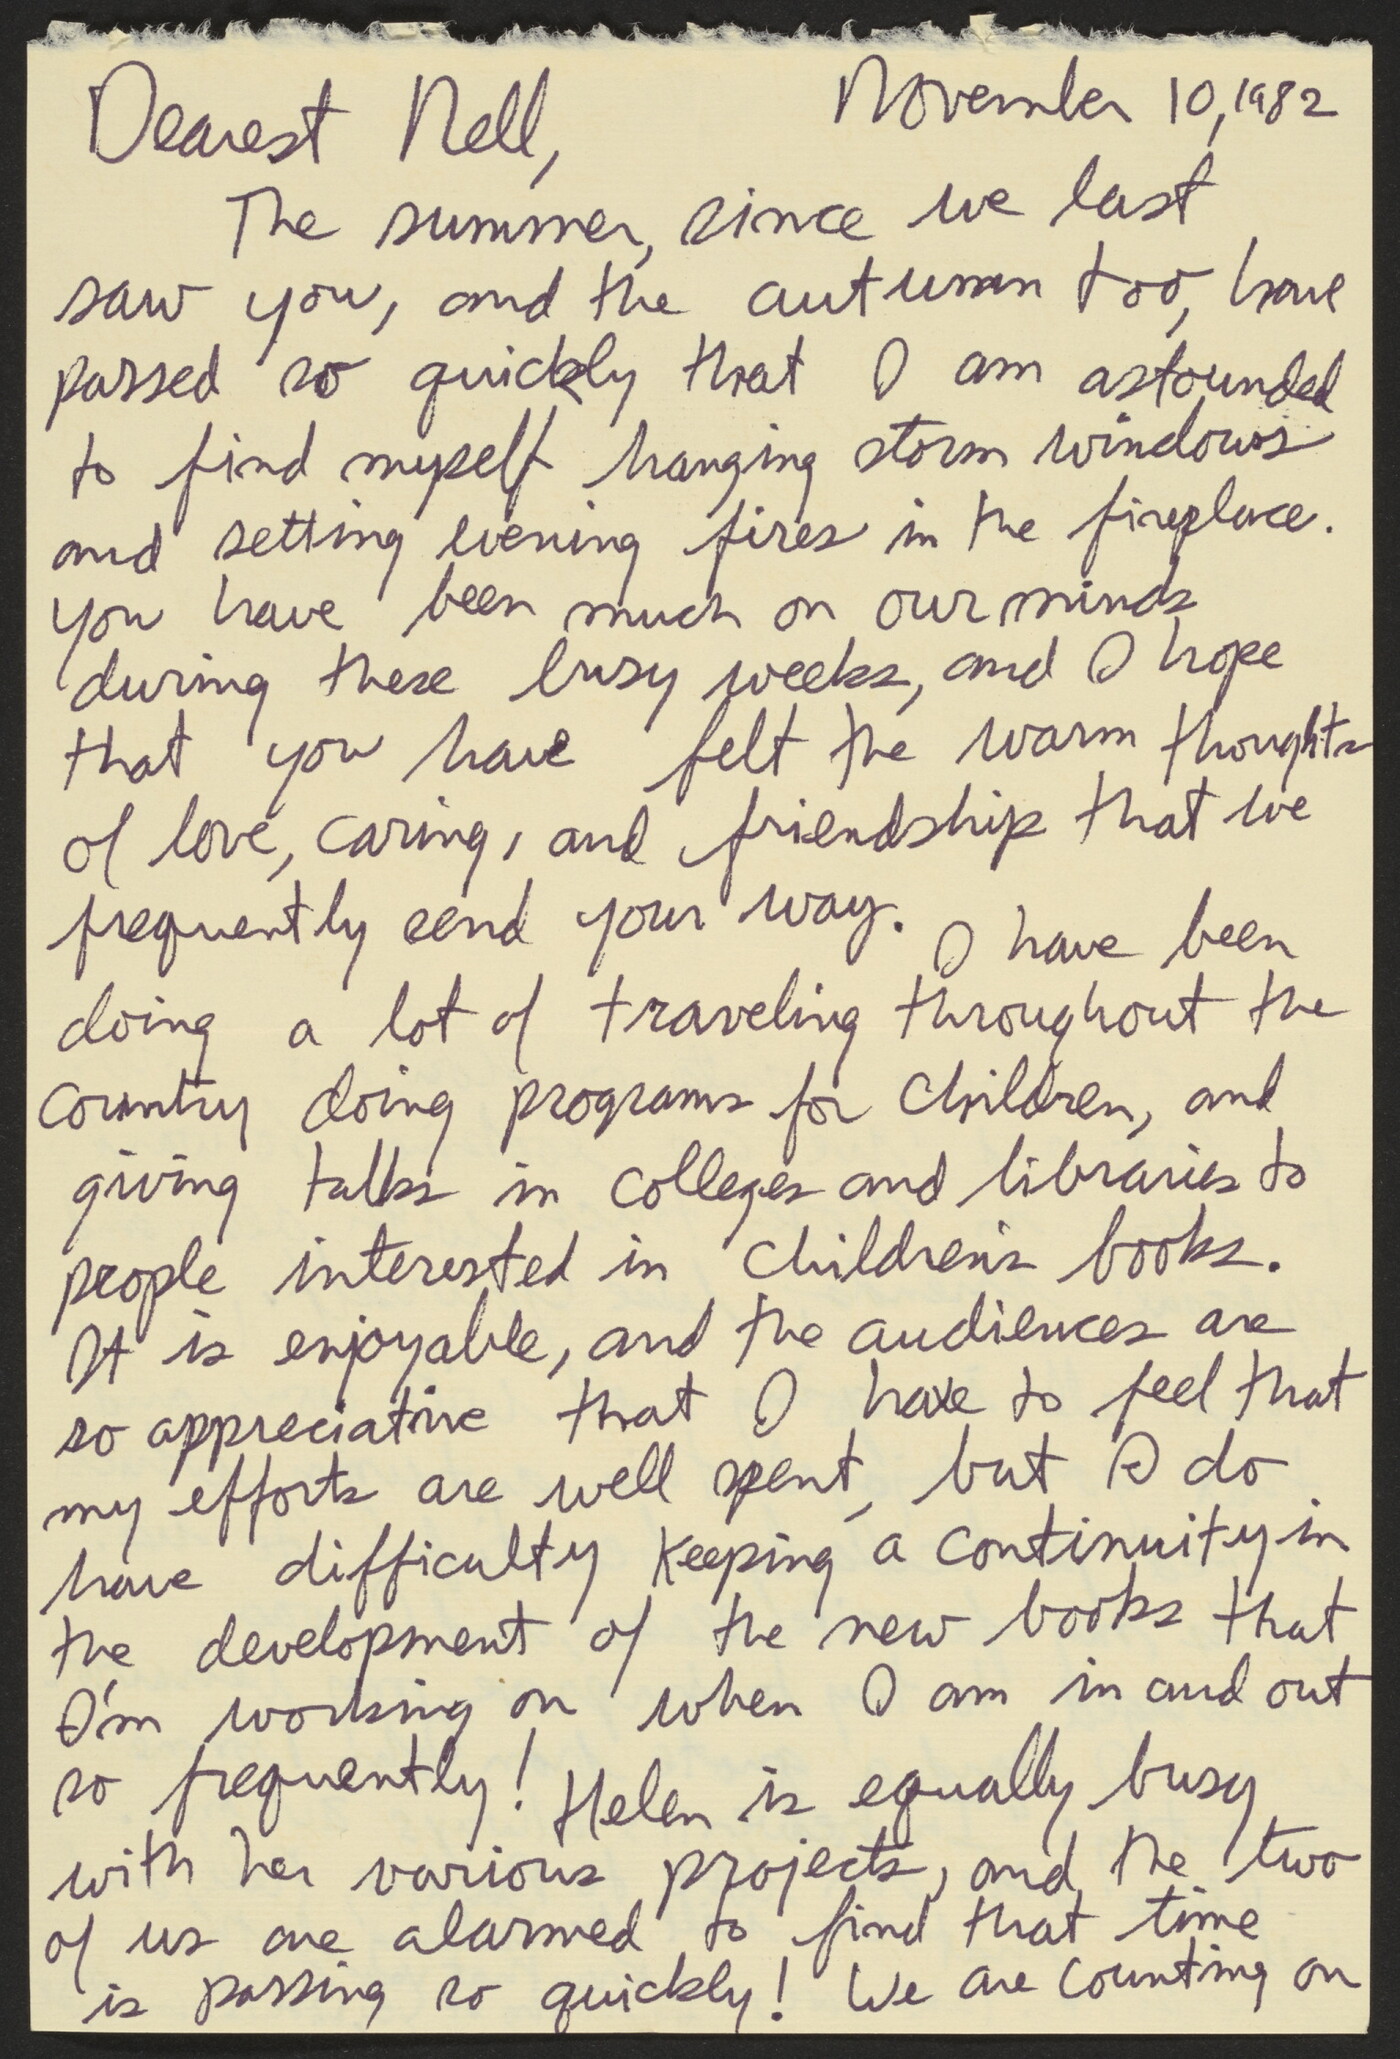 November 10, 1982
Dearest Nell,
The summer, since we last
saw you, and the autumn too, have
passed so quickly that I am astounded
to find myself hanging storm windows
and setting evening fires in the fireplace.
You have been much on our minds
during these busy weeks, and I hope
that you have felt the warm thoughts
of love, caring, and friendship that we
frequently send your way. I have been
doing a lot of traveling throughout the
country doing programs for children, and
giving talks in colleges and libraries to
people interested in children's books.
It is enjoyable, and the audiences are
so appreciative that I have to feel that
my efforts are well spent, but I do
have difficulty keeping a continuity in
the development of the new books that
I'm working on when I am in and out
so frequently! Helen is equally busy
with her various projects, and the two
of us are alarmed to find that time
is passing so quickly! We are counting on